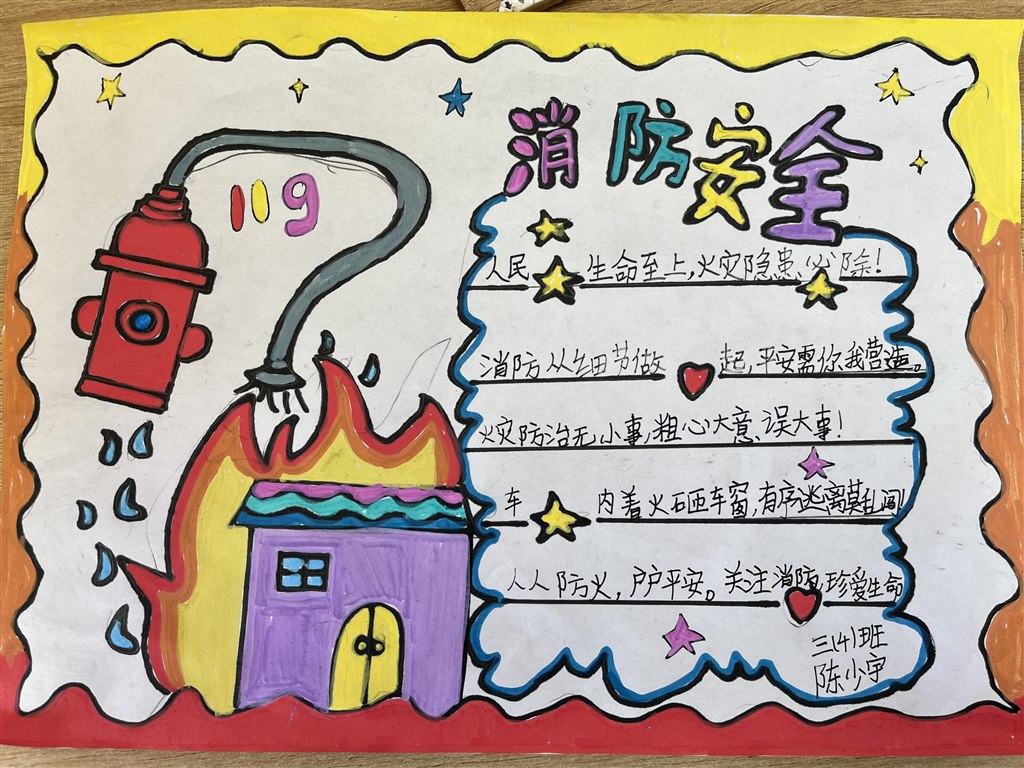 消防安全
119
人民生命至上,火灾隐患必除!
消防从细节做起,平安需你我营造。
火灾防治无小事,粗心大意误大事!
车内着火砸车窗,有序逃离莫乱闯!
人人防火,户户平安。关注消防,珍爱生命
三(4)班
陈少宇